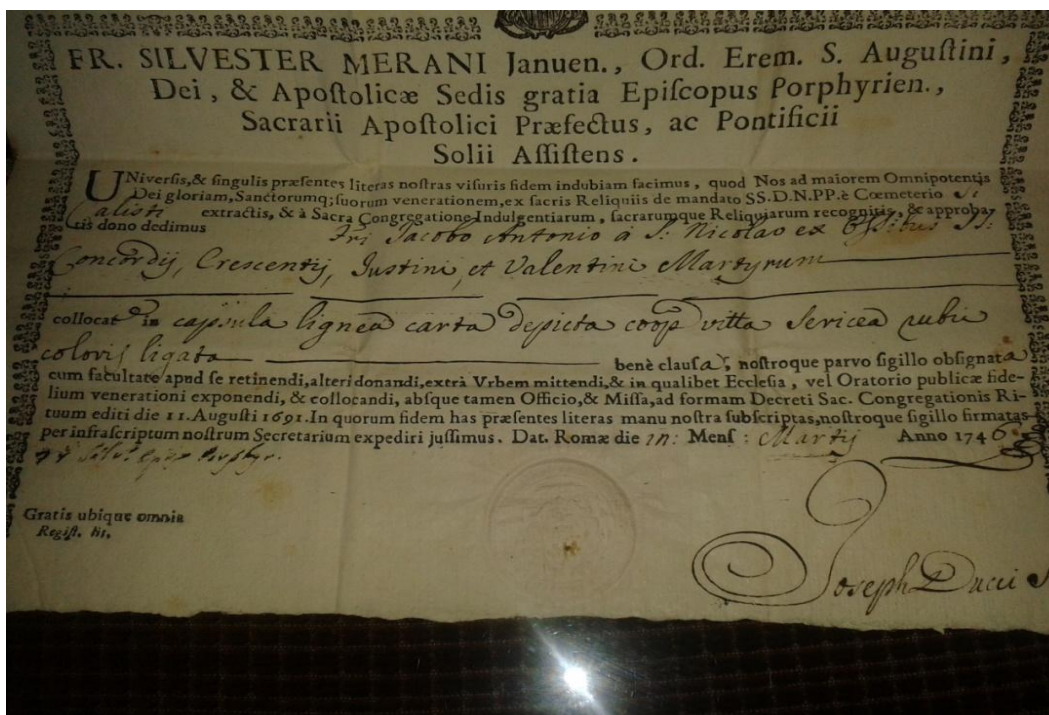 FR. SILVESTER MERANI Januen., Ord. Erem. S. Auguſtini,
Dei, & Apoſtolicæ Sedis gratia Epiſcopus Porphyrien.,
Sacrarii Apoſtolici Præfectus, ac Pontificii
Solii Aſſiſtens.
UNiverſis,& ſingulis præſentes literas noſtras viſuris fidem indubiam facimus, quod Nos ad maiorem Omnipotentis
Dei gloriam, Sanctorumq; ſuorum venerationem, ex ſacris Reliquiis de mandato SS.D.N.PP. è Cœmeterio S:
Calisti extractis, & à Sacra Congregatione Indulgentiarum, ſacrarumque Reliquiarum recognitis, & approba-
tis dono dedimus Fri Jacobo Antonio à S: Nicolao ex Ossibus SS:
Concordij, Crescentij, Justini, et Valentini Martyrum
collocat in capsula lignea carta depicta coop vitta sericea rubri
coloris ligata benè clauſa, noſtroque parvo ſigillo obſignata
cum facultate apud ſe retinendi, alteri donandi, extrà Vrbem mittendi, & in qualibet Eccleſia, vel Oratorio publicæ fide-
lium venerationi exponendi, & collocandi, abſque tamen Officio, & Miſſa, ad formam Decreti Sac. Congregationis Ri-
tuum editi die 11. Auguſti 1691. In quorum fidem has præſentes literas manu noſtra ſubſcriptas, noſtroque ſigillo firmatas
per infraſcriptum noſtrum Secretarium expediri juſſimus. Dat. Romæ die Menſ: Martij Anno 1746
Gratis ubique omnia
Regiſt. lit.
Joseph Ducci